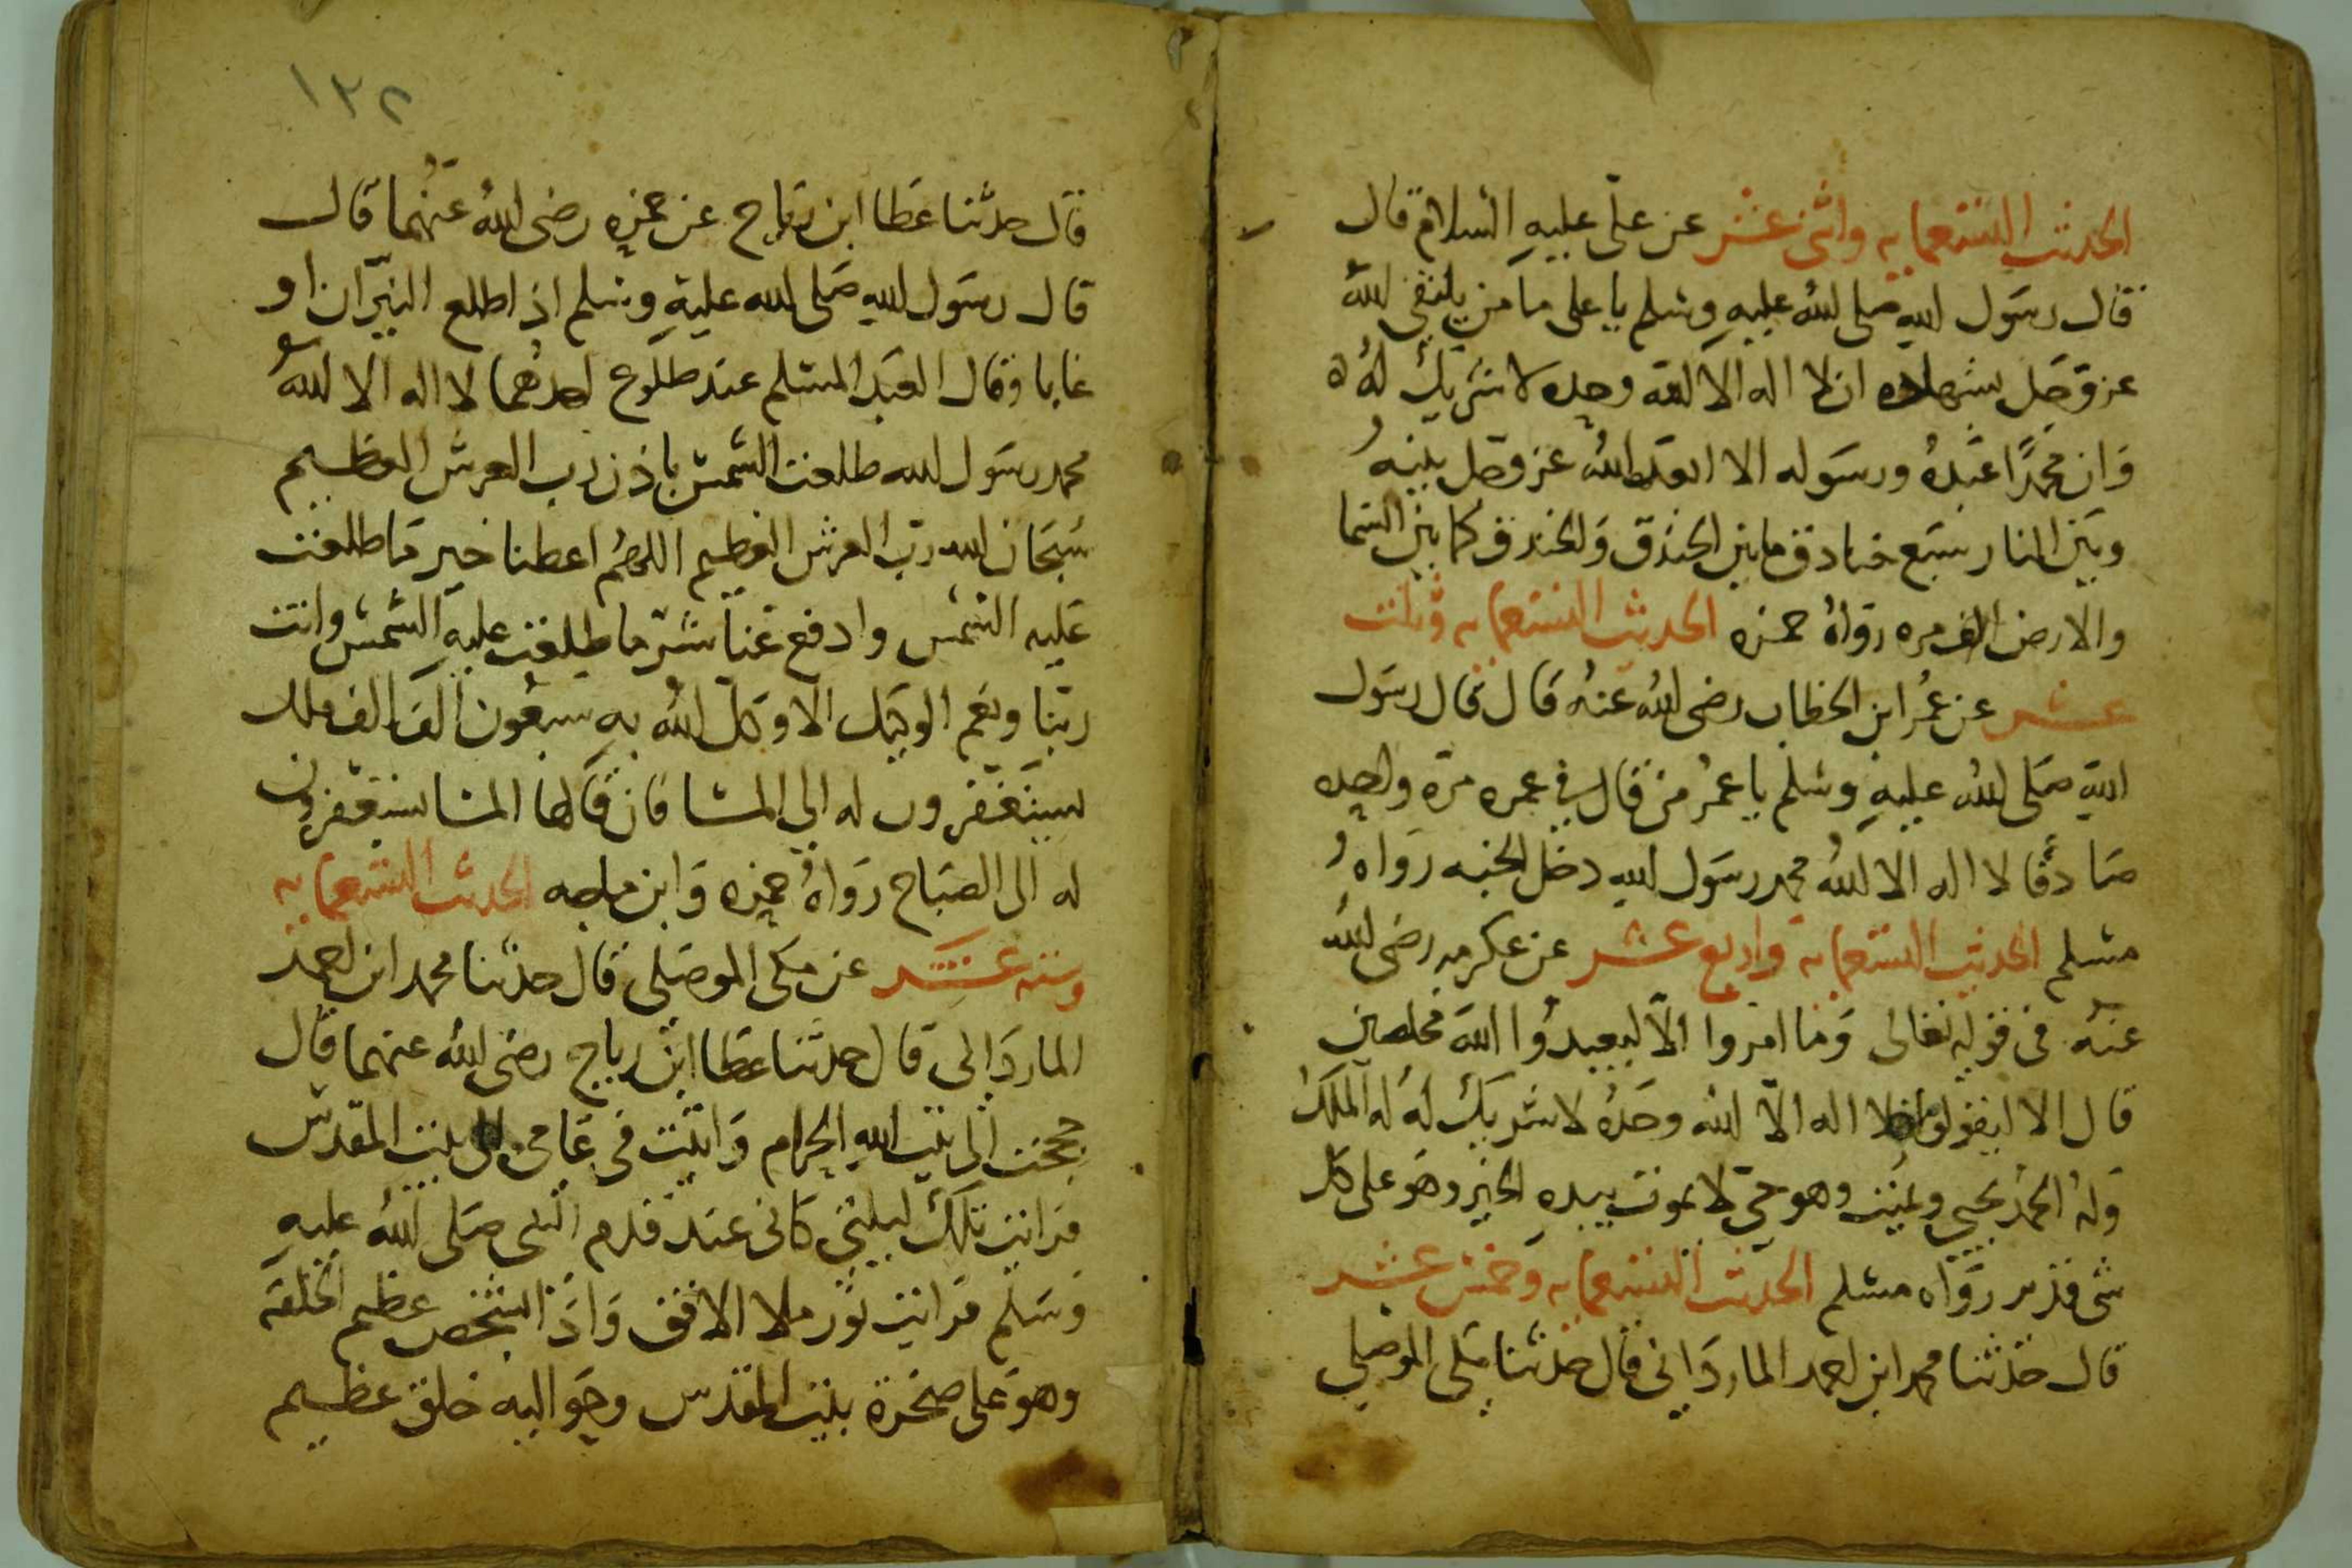 الحديث التسعمايه واثنى عشر عن على عليه السلام قال
قال رسول الله صلى الله عليه وسلم يا على ما من يلتقى الله
عز وجل بشهاده ان لا اله الا الله وحده لا شريك له
وان محمدًا عبده ورسوله الا الله عز وجل بينه
وبين النار سبع خنادق ما بين الخندق والخندق كما بين السما
والارض الف مره رواه حمزه الحديث التسعمايه وثلث
عشر عن عمر ابن الخطاب رضى الله عنه قال قال رسول
الله صلى الله عليه وسلم يا عمر من قال فى عمره مرة واحده
صادقا لا اله الا الله محمد رسول الله دخل الجنه رواه
مسلم الحديث التسعمايه واربع عشر عن عكرمه رضى الله
عنه فى قوله تعالى وما امروا الّا ليعبدوا الله مخلصين
قال الا ليقولوا لا اله الّا الله وحده لا شريك له له الملك
وله الحمد يحيى ويميت وهو حىّ لا يموت بيده الخير وهو على كل
شى قدير رواه مسلم الحديث التسعمايه وخمس عشر
قال حدثنا محمد ابن احمد الماردانى قال حدثنا مكى الموصلى
١٣٢
قال حدثنا عطا ابن رباح عن حمزه رضى الله عنهما قال
قال رسول الله صلى الله عليه وسلم اذ اطلع النيّران او
غابا وقال العبد المسلم عند طلوع احدهما لا اله الا الله
محمد رسول الله طلعت الشمس باذن رب العرش العظيم
سبحان الله رب العرش العظيم اللهم اعطنا خير ما طلعت
عليه الشمس وادفع عنا شرّ ما طلعت عليه الشمس وانت
ربّنا ونعم الوكيل الا وكل الله به سبعون الف الف ملك
يستغفرون له الى المسا فان قالها المسا يستغفرون
له الى الصباح رواه حمزه وابن ماجه الحديث التسعمايه
وسته عشر عن مكى الموصلى قال حدثنا محمد ابن احمد
الماردانى قال حدثنا عطا ابن رباح رضى الله عنهما قال
حججت الى بيت الله الحرام واتيت فى عامى الى بيت المقدس
فرايت تلك ليلتى كانى عند قدم النبى صلى الله عليه
وسلم فرايت نور ملا الافق واذا شخص عظيم الخلقه
وهو على صخرة بيت المقدس وحواليه خلق عظيم